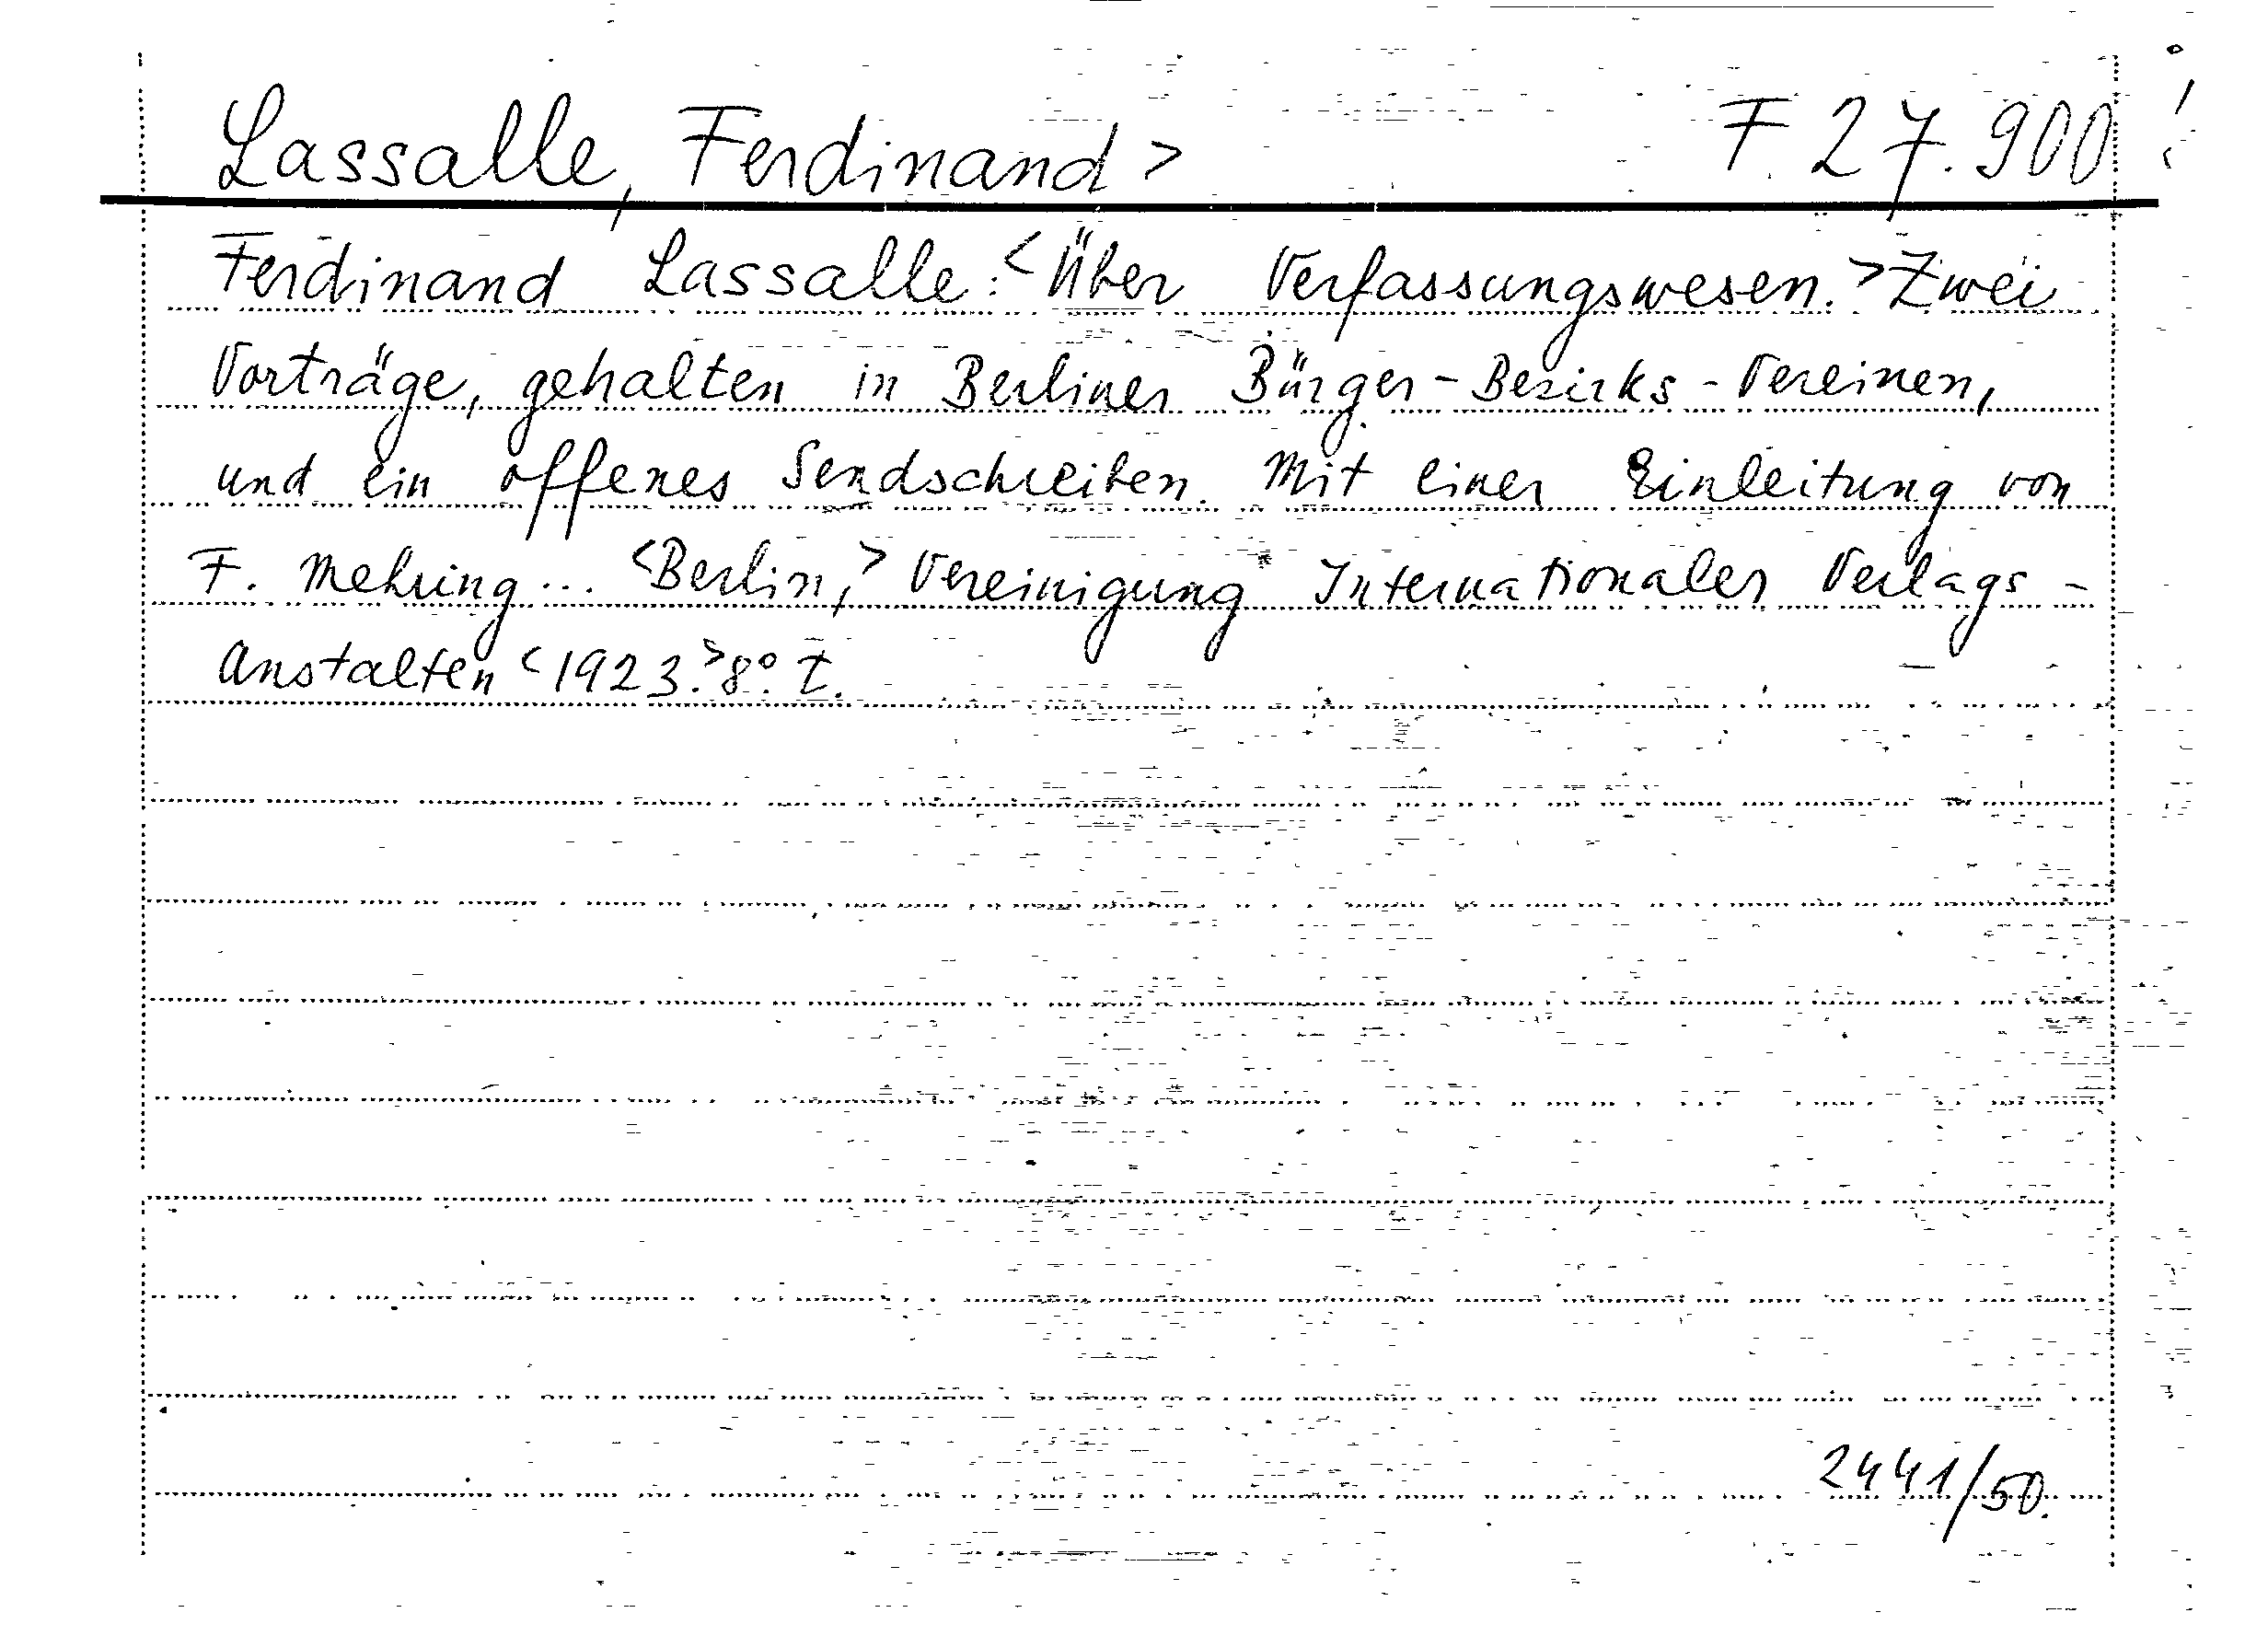 Lassalle, Ferdinand > F. 27.900
Ferdinand Lassalle: <Über Verfassungswesen.> Zwei
Vorträge, gehalten in Berliner Bürger-Bezirks-Vereinen,
und ein offenes Sendschreiben. Mit einer Einleitung von
F. Mehring... <Berlin,> Vereinigung Internationaler Verlags-
Anstalten <1923.> 8°.
2441/50.